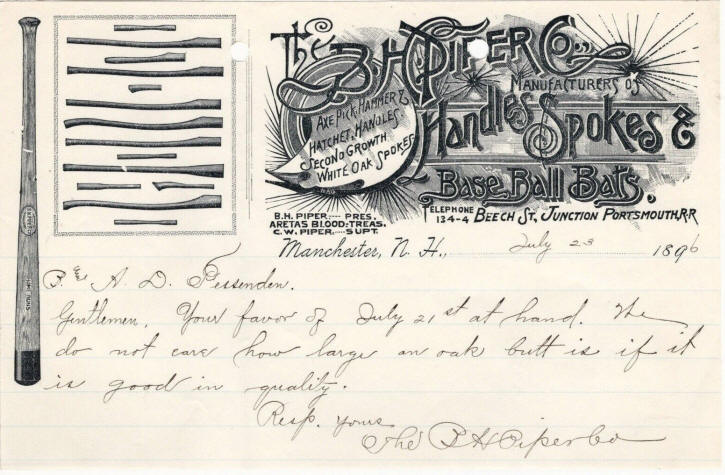 The B.H. Piper Co.,
Manufacturers of
Handles Spokes &
Base Ball Bats,
Axe Pick, Hammer &
Hatchet, Handles
Second Growth
White Oak Spokes
Telephone 134-4 Beech St, Junction Portsmouth, R.R
B.H. PIPER.... PRES.
ARETAS BLOOD: TREAS.
C.W. PIPER.... SUPT.
Manchester, N. H., July 23 1896
F. & A. D. Fessenden.
Gentlemen, Your favor of July 21st at hand. We
do not care how large an oak butt is if it
is good in quality.
Resp. yours
The B H Piper Co